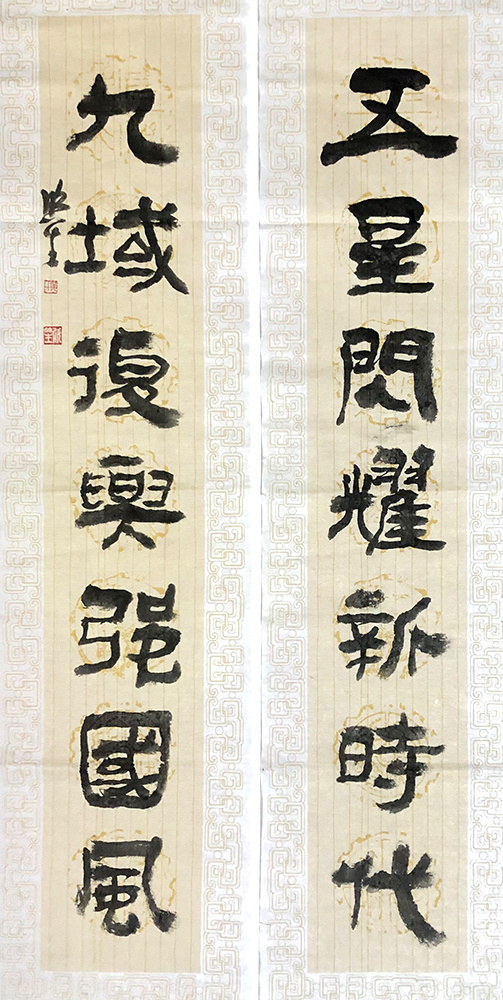 五星閃耀新時代
九域復興強國風